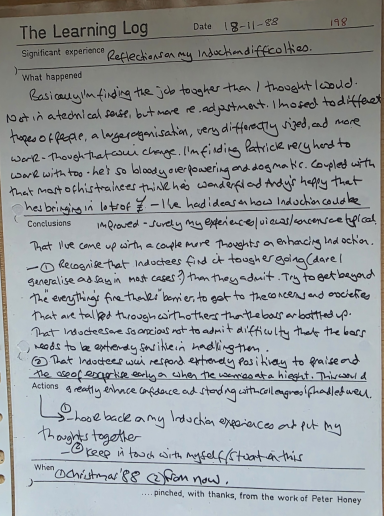 The Learning Log
Date 18-11-88
198
Significant experience Reflections on my Induction difficulties.
What happened
Basically I'm finding the job tougher than I thought I would.
Not in a technical sense, but more re. adjustment. I'm used to different
types of people, a large organisation, very differently sized, and more
work - though that will change. I'm finding Patrick very hard to
work with too - he's so bloody overpowering and dogmatic. Coupled with
that most of his trainees think he's wonderful and Andy's happy that
he's bringing in lots of £ - I've had ideas on how Induction could be
Conclusions improved - surely my experiences/views/concerns typical
That I've come up with a couple more thoughts on enhancing Induction.
- ① Recognise that inductees find it tougher going (dare I
generalise and say in most cases?) than they admit. Try to get beyond
the "everything's fine thanks" barrier, to get to the concerns and anxieties
that are talked through with others than the boss or bottled up.
That inductees are so anxious not to admit difficulty that the boss
needs to be extremely sensitive in handling them.
② That inductees will respond extremely positively to praise and
the use of expertise early on when the worries are at a height. This would
Actions greatly enhance confidence and standing with colleagues if handled well.
① - look back on my Induction experiences and put my
thoughts together
- ② Keep in touch with myself/ on this
When
① Christmas '88 ② from now.
....pinched, with thanks, from the work of Peter Honey